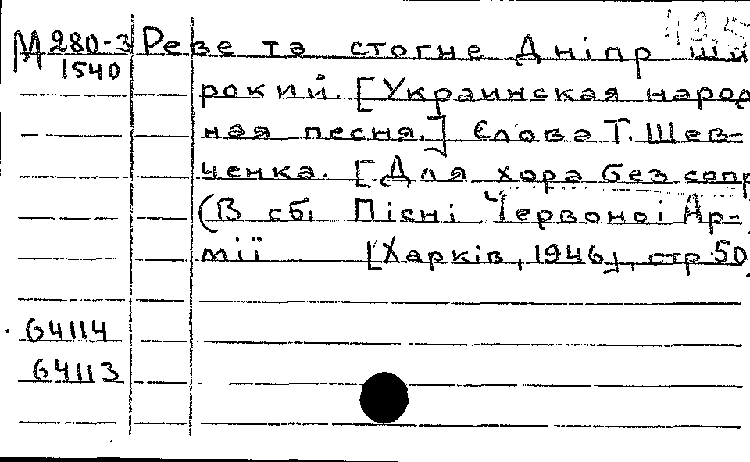 М 280-3 Реве та стогне Дніпр ши
1540
рокий. [Украинская народ
ная песня.] Слова Т. Шев-
ченка. [Для хора без сопр
(В сб. Пісні Червоноі Ар-
мії [Харків, 1946], стр 50
64114
64113